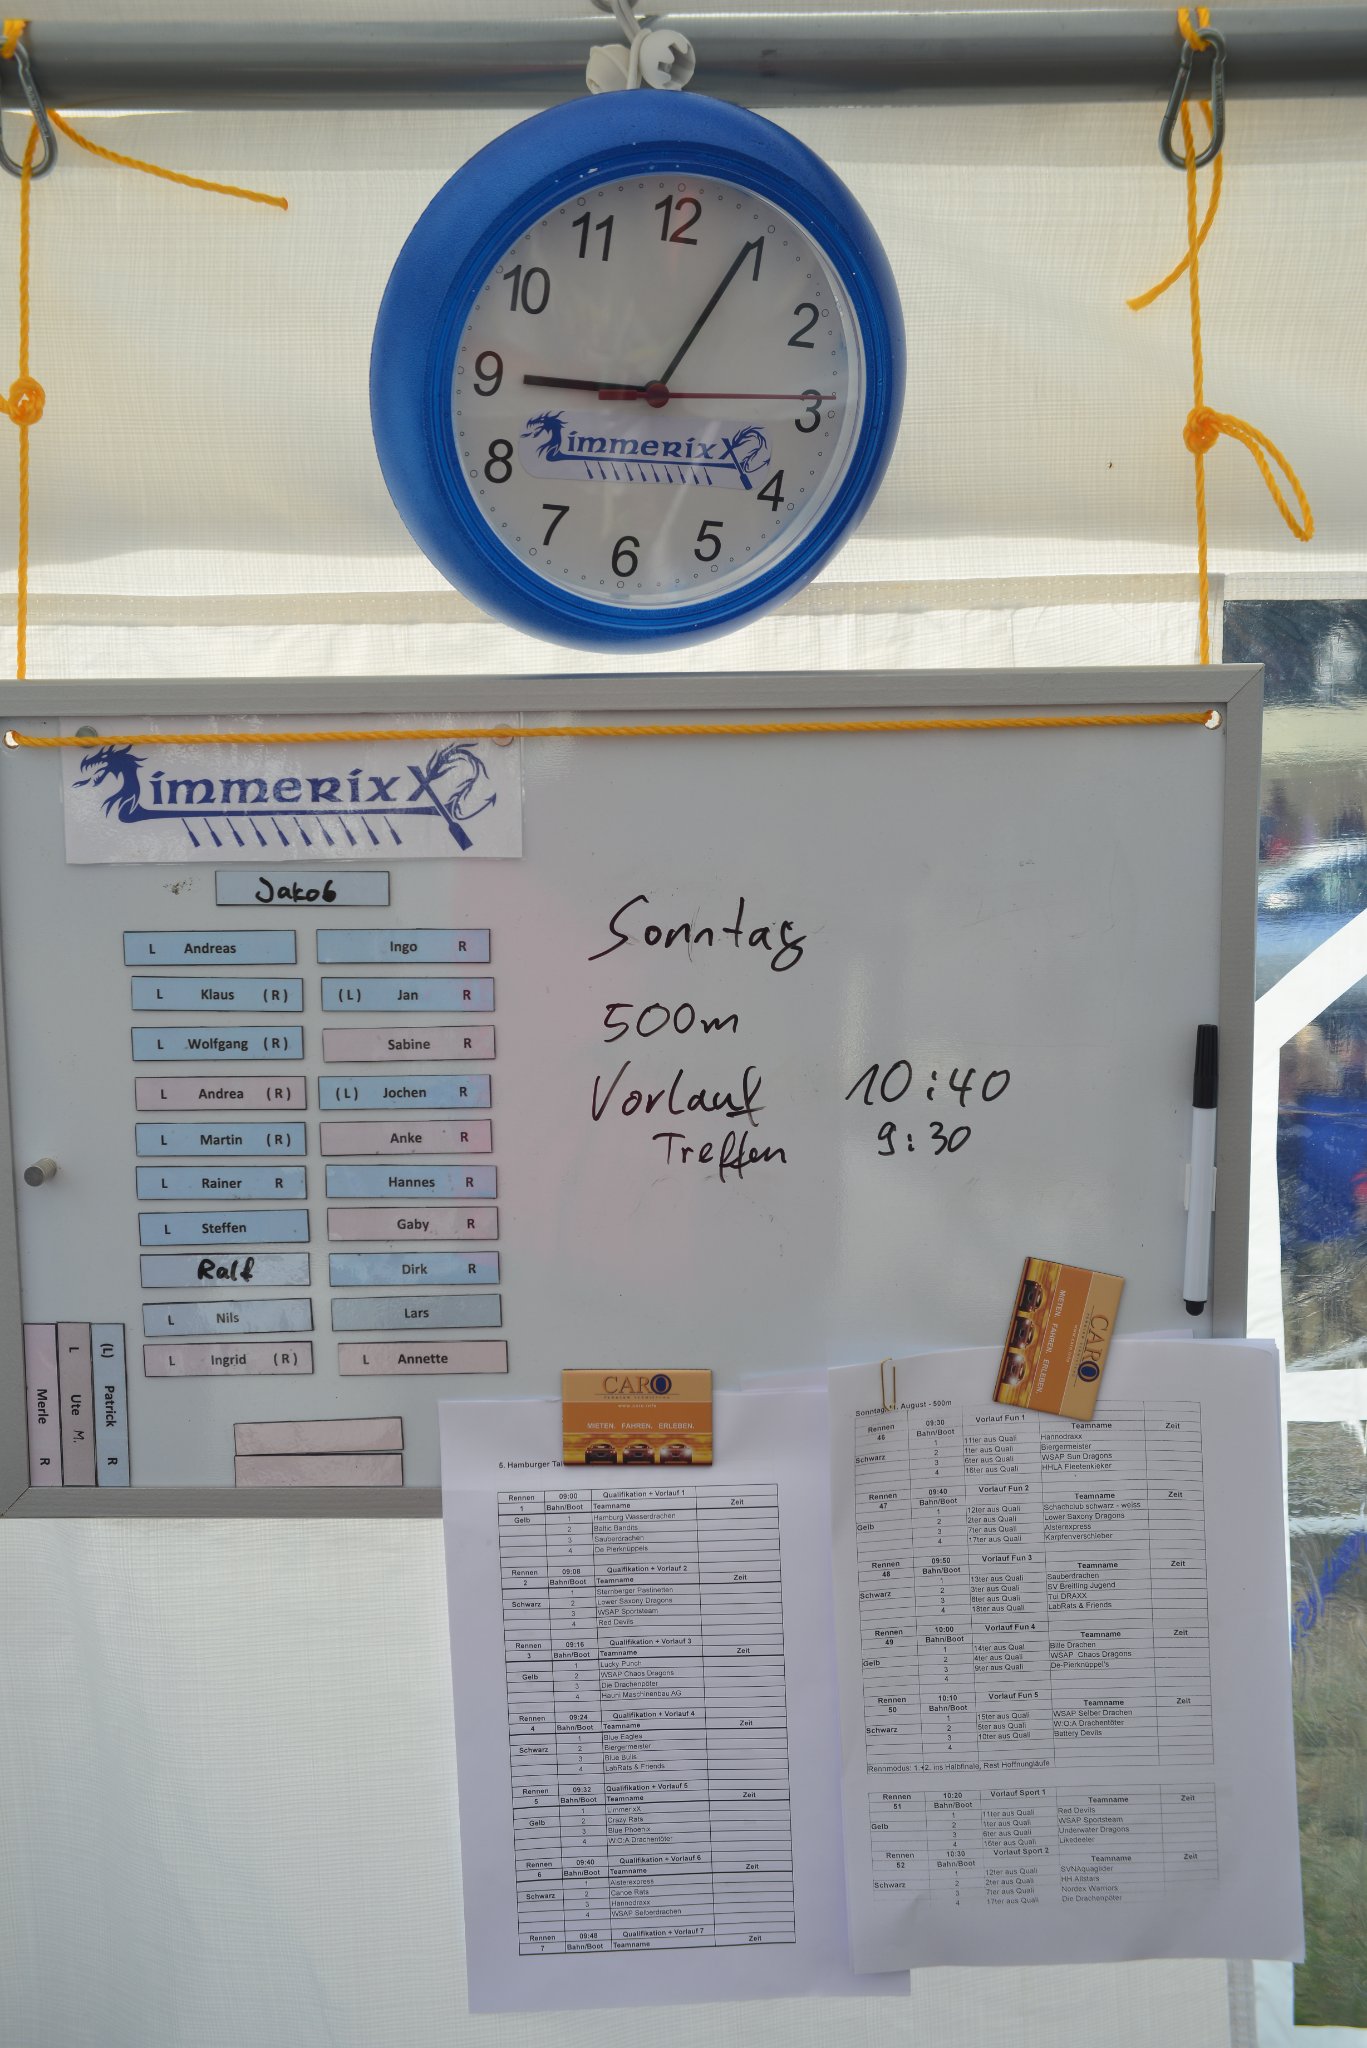 12
1
2
3
4
5
6
7
8
9
10
11
immerixX
immerixX
Jakob
L Andreas
Ingo R
L Klaus (R)
(L) Jan R
L Wolfgang (R)
Sabine R
L Andrea (R)
(L) Jochen R
L Martin (R)
Anke R
L Rainer R
Hannes R
L Steffen
Gaby R
Ralf
Dirk R
L Nils
Lars
L Ingrid (R)
L Annette
(L) Patrick R
L Ute M.
Merle R
Sonntag
500m
Vorlauf 10:40
Treffen 9:30
CARO
www.caro.info
MIETEN. FAHREN. ERLEBEN.
CARO
MIETEN. FAHREN. ERLEBEN.
5. Hamburger
Rennen 09:00 Qualifikation + Vorlauf 1
1 Bahn/Boot Teamname Zeit
Gelb 1 Hamburg Wasserdrachen
2 Baltic Bandits
3 Sauberdrachen
4 De Pierknüppels
Rennen 09:08 Qualifikation + Vorlauf 2
2 Bahn/Boot Teamname Zeit
1 Sternberger Pastinetten
Schwarz 2 Lower Saxony Dragons
3 WSAP Sportsteam
4 Red Devils
Rennen 09:16 Qualifikation + Vorlauf 3
3 Bahn/Boot Teamname Zeit
1 Lucky Punch
Gelb 2 WSAP Chaos Dragons
3 Die Drachenpöter
4 Hauni Maschinenbau AG
Rennen 09:24 Qualifikation + Vorlauf 4
4 Bahn/Boot Teamname Zeit
1 Blue Eagles
Schwarz 2 Biergermeister
3 Blue Bulls
4 LabRats & Friends
Rennen 09:32 Qualifikation + Vorlauf 5
5 Bahn/Boot Teamname Zeit
1 ZimmerixX
Gelb 2 Crazy Rats
3 Blue Phoenix
4 W:O:A Drachentöter
Rennen 09:40 Qualifikation + Vorlauf 6
6 Bahn/Boot Teamname Zeit
1 Alsterexpress
Schwarz 2 Canoe Rats
3 Hannodraxx
4 WSAP Selberdrachen
Rennen 09:48 Qualifikation + Vorlauf 7
7 Bahn/Boot Teamname Zeit
Sonntag August - 500m
Rennen 09:30 Vorlauf Fun 1
46 Bahn/Boot Teamname Zeit
1 11ter aus Quali Hannodraxx
Schwarz 2 1ter aus Quali Biergermeister
3 6ter aus Quali WSAP Sun Dragons
4 16ter aus Quali HHLA Fleetenkieker
Rennen 09:40 Vorlauf Fun 2
47 Bahn/Boot Teamname Zeit
1 12ter aus Quali Schachclub schwarz - weiss
Gelb 2 2ter aus Quali Lower Saxony Dragons
3 7ter aus Quali Alsterexpress
4 17ter aus Quali Karpfenverschieber
Rennen 09:50 Vorlauf Fun 3
48 Bahn/Boot Teamname Zeit
1 13ter aus Quali Sauberdrachen
Schwarz 2 3ter aus Quali SV Breitling Jugend
3 8ter aus Quali Tui DRAXX
4 18ter aus Quali LabRats & Friends
Rennen 10:00 Vorlauf Fun 4
49 Bahn/Boot Teamname Zeit
1 14ter aus Quali Bille Drachen
Gelb 2 4ter aus Quali WSAP Chaos Dragons
3 9ter aus Quali De-Pierknüppel's
4
Rennen 10:10 Vorlauf Fun 5
50 Bahn/Boot Teamname Zeit
1 15ter aus Quali WSAP Selber Drachen
Schwarz 2 5ter aus Quali W:O:A Drachentöter
3 10ter aus Quali Battery Devils
4
Rennmodus: 1.+2. ins Halbfinale, Rest Hoffnungläufe
Rennen 10:20 Vorlauf Sport 1
51 Bahn/Boot Teamname Zeit
1 11ter aus Quali Red Devils
Gelb 2 1ter aus Quali WSAP Sportsteam
3 6ter aus Quali Underwater Dragons
4 16ter aus Quali Likedeeler
Rennen 10:30 Vorlauf Sport 2
52 Bahn/Boot Teamname Zeit
1 12ter aus Quali SVNAquaglider
Schwarz 2 2ter aus Quali HH Allstars
3 7ter aus Quali Nordex Warriors
4 17ter aus Quali Die Drachenpöter